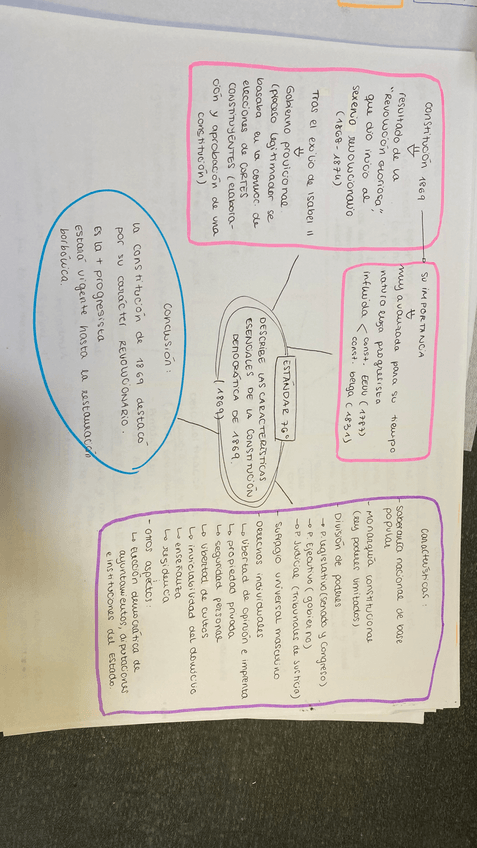 ESTÁNDAR 76º
DESCRIBE LAS CARACTERÍSTICAS
ESENCIALES DE LA CONSTITUCIÓN
DEMOCRÁTICA DE 1869.
(1869)
CONSTITUCIÓN 1869
resultado de la
"REVOLUCIÓN GLORIOSA",
que dio inicio al
sexenio revolucionario
(1868-1874)
Tras el exilio de Isabel II
Gobierno provicional
(proceso legitimador se
basaba en la convoc. de
elecciones de CORTES
CONSTITUYENTES (elabora-
ción y aprobación de una
constitución)
SU IMPORTANCIA
muy avanzada para su tiempo
naturaleza progresista
influida < const. EEUU (1787)
const. belga (1831)
características:
- Soberanía nacional de base
popular
- Monarquía constitucional
(rey poderes limitados)
División de poderes
→ P. legislativo (Senado y Congreso)
→ P. Ejecutivo (gobierno)
→ P. Judicial (Tribunales de Justicia)
- Sufragio universal masculino
- Derechos individuales
↳ libertad de opinión e imprenta
↳ propiedad privada
↳ seguridad personal
↳ libertad de cultos
↳ inviolabilidad del domicilio
↳ enseñanza
↳ residencia
- Otros aspectos:
↳ Elección democrática de
ayuntamientos, diputaciones
e instituciones del Estado.
Conclusión:
la constitución de 1869 destacó
por su carácter REVOLUCIONARIO.
Es la + progresista
Estará vigente hasta la restauración
borbónica